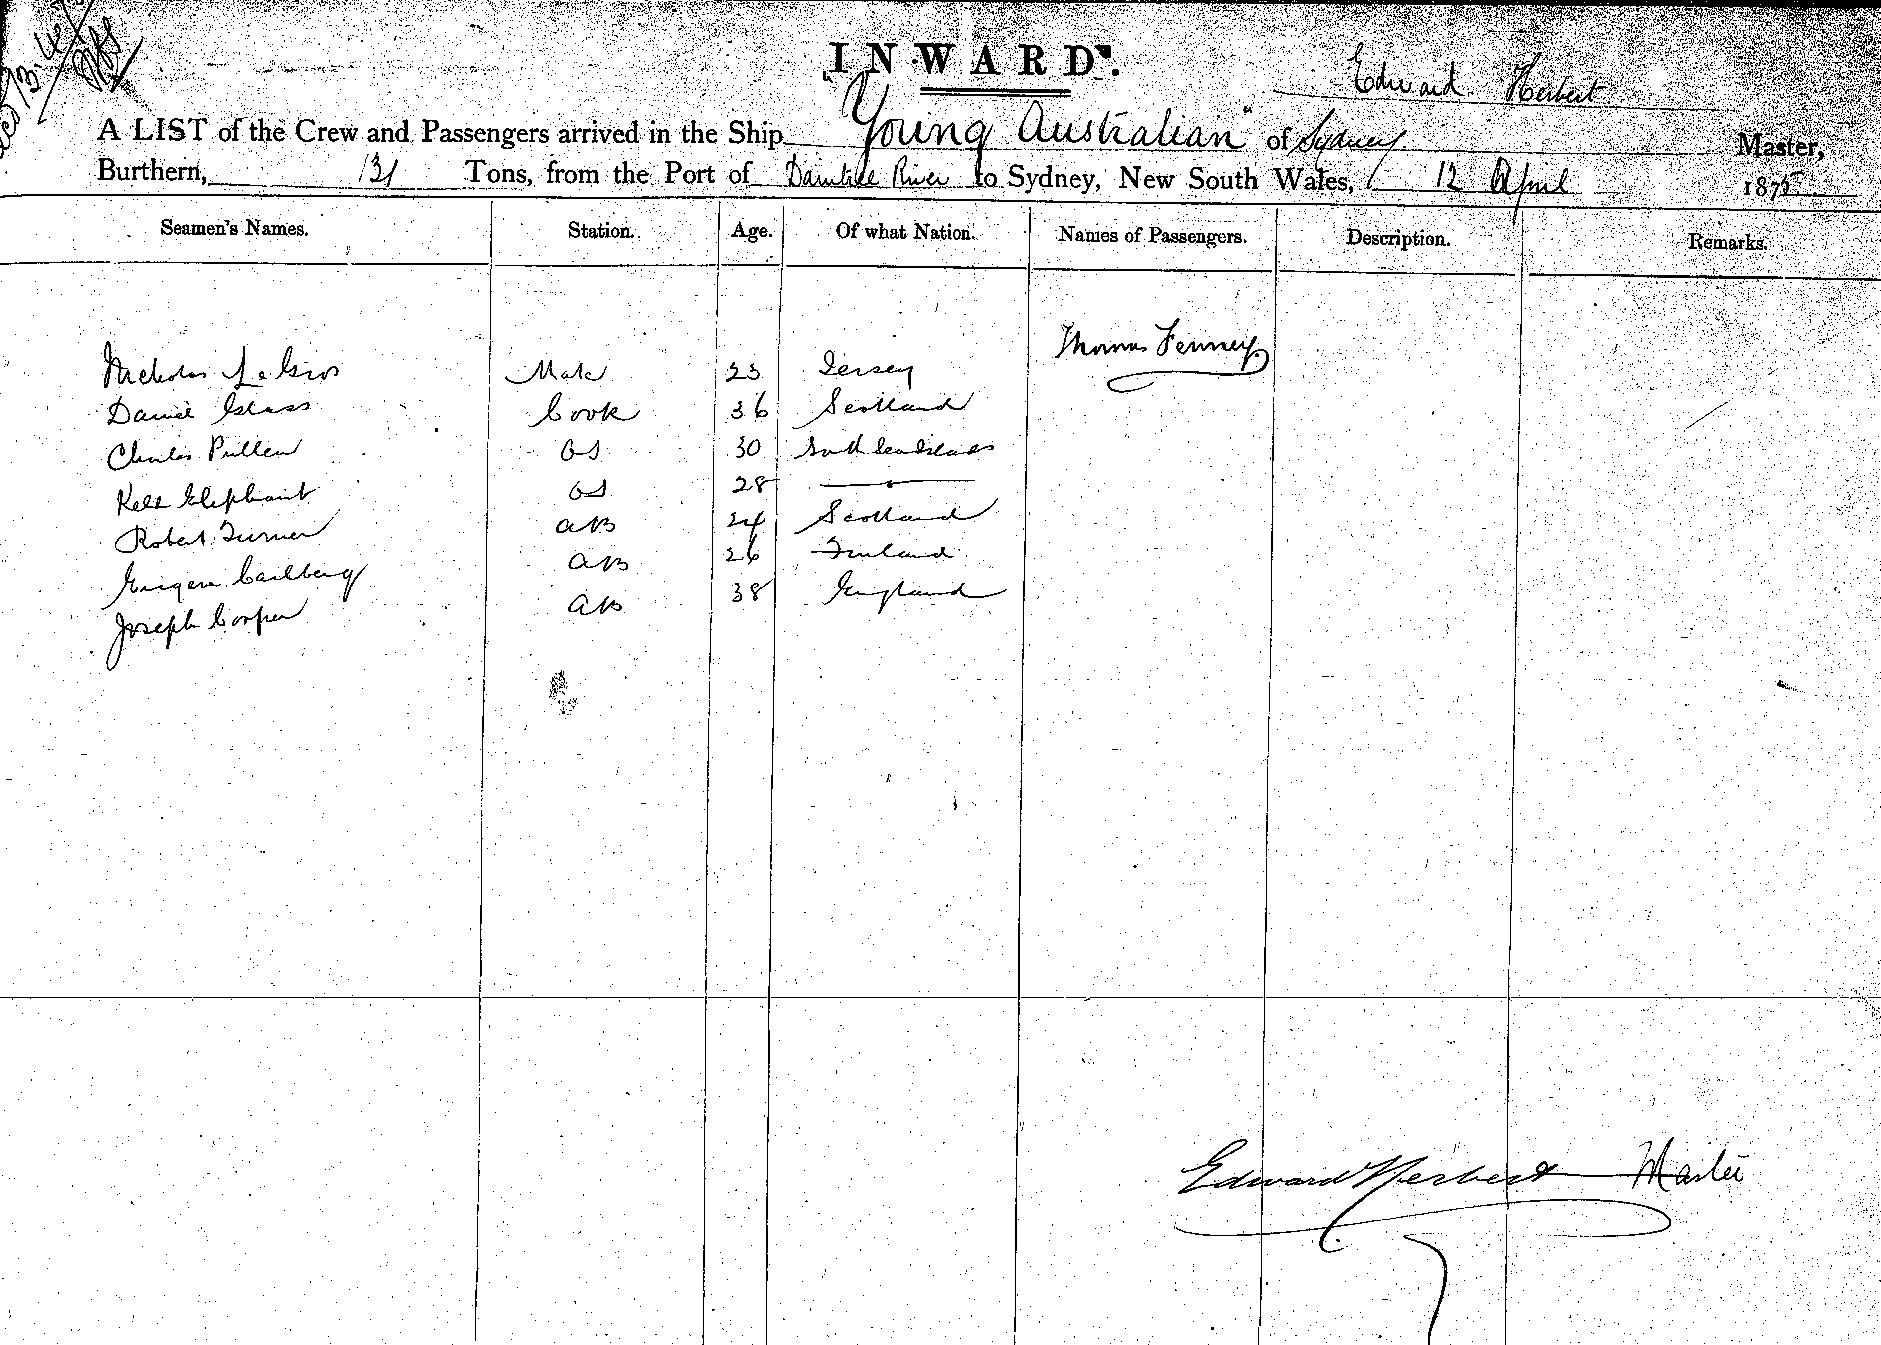 INWARD.
Edward Herbert
A LIST of the Crew and Passengers arrived in the Ship "Young Australian" of Sydney Master,
Burthern, 131 Tons, from the Port of Daintree River to Sydney, New South Wales, 12 April 1875
Seamen's Names. Station. Age. Of what Nation. Names of Passengers. Description. Remarks.
Thomas Fenney
Nicholas Le Gros Mate 23 Jersey
Daniel Glass Cook 36 Scotland
Charles Pullen OS 30 South Sea Islands
Elephant OS 28
Robert Turner AB 24 Scotland
Carlberg AB 26 Finland
Joseph Cooper AB 38 England
Edward Herbert Master